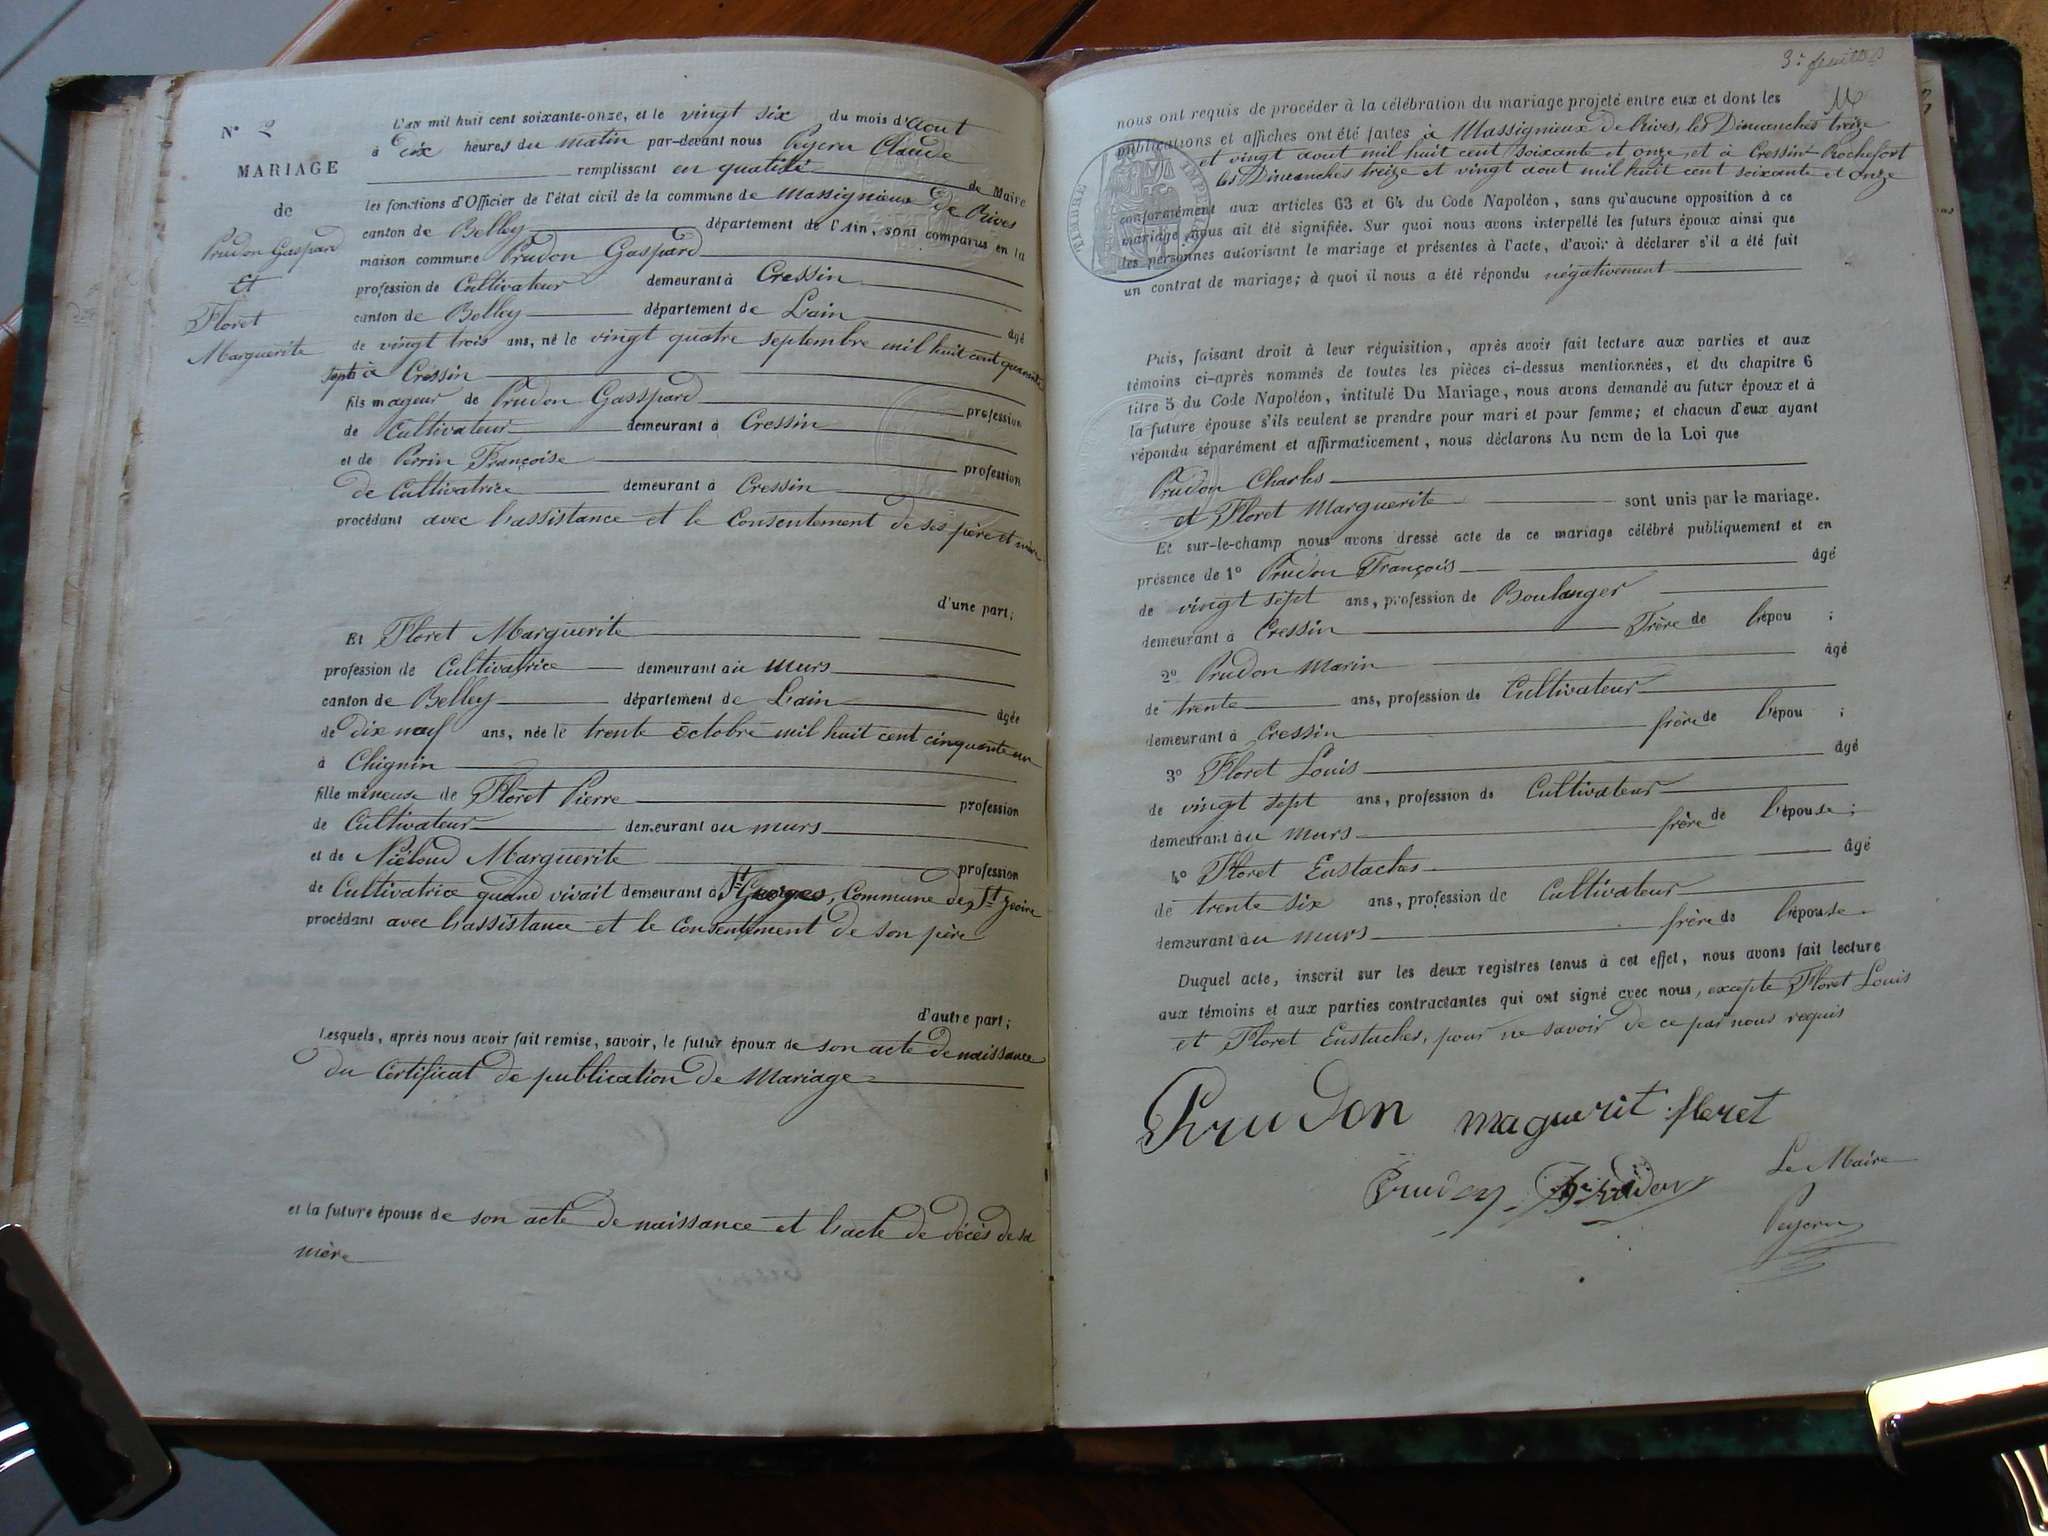 N° 2
MARIAGE
de
Prudon Gaspard
Et
Floret
Marguerite
L'an mil huit cent soixante-onze, et le vingt six du mois d'aout
à dix heures du matin par-devant nous Peyeru Claude
remplissant en qualité de Maire
les fonctions d'Officier de l'état civil de la commune de Massignieux De Rives
canton de Belley département de l'Ain, sont comparus en la
maison commune Prudon Gaspard
profession de Cultivateur demeurant à Cressin
canton de Belley département de L'ain âgé
de vingt trois ans, né le vingt quatre septembre mil huit cent quarante
sept à Cressin
fils mageur de Prudon Gasspard profession
de Cultivateur demeurant à Cressin
et de Perrin Françoise profession
de Cultivatrice demeurant à Cressin
procédant avec l'assistance et le Consentement de ses père et mère
d'une part;
Et Floret Marguerite
profession de Cultivatrice demeurant au murs
canton de Belley département de L'ain âgée
de dix neuf ans, née le trente octobre mil huit cent cinquante un
à Chignin
fille mineuse de Floret Pierre profession
de Cultivateur demeurant au murs
et de Marguerite profession
de Cultivatrice quand vivait demeurant à St Georges, Commune de St
procédant avec l'assistance et le Consentement de son père
d'autre part;
Lesquels, après nous avoir fait remise, savoir, le futur époux de son acte de naissance
du Certificat de publication de Mariage
et la future épouse de son acte de naissance et l'acte de décès de sa
mère
3e feuille
nous ont requis de procéder à la célébration du mariage projeté entre eux et dont les
publications et affiches ont été faites à Massignieux de Rives, les Dimanches treize
et vingt aout mil huit cent soixante et onze, et à Cressin-Rochefort
les Dimanches treize et vingt aout mil huit cent soixante et onze
TIMBRE IMPERIAL
conformément aux articles 63 et 64 du Code Napoléon, sans qu'aucune opposition à ce
mariage nous ait été signifiée. Sur quoi nous avons interpellé les futurs époux ainsi que
les personnes autorisant le mariage et présentes à l'acte, d'avoir à déclarer s'il a été fait
un contrat de mariage; à quoi il nous a été répondu négativement
Puis, faisant droit à leur réquisition, après avoir fait lecture aux parties et aux
témoins ci-après nommés de toutes les pièces ci-dessus mentionnées, et du chapitre 6
titre 5 du Code Napoléon, intitulé Du Mariage, nous avons demandé au futur époux et à
la future épouse s'ils veulent se prendre pour mari et pour femme; et chacun d'eux ayant
répondu séparément et affirmativement, nous déclarons Au nom de la Loi que
Prudon Charles
et Floret Marguerite sont unis par le mariage.
Et sur-le-champ nous avons dressé acte de ce mariage célébré publiquement et en
présence de 1° Prudon François âgé
de vingt sept ans, profession de Boulanger
demeurant à Cressin Frère de l'épou ;
2° Prudon Marin âgé
de trente ans, profession de Cultivateur
demeurant à Cressin frère de l'épou ;
3° Floret Louis âgé
de vingt sept ans, profession de Cultivateur
demeurant àu murs frère de l'épouse ;
4° Floret Eustaches âgé
de trente six ans, profession de Cultivateur
demeurant àu murs frère de l'épouse.
Duquel acte, inscrit sur les deux registres tenus à cet effet, nous avons fait lecture
aux témoins et aux parties contractantes qui ont signé avec nous, excepte Floret Louis
et Floret Eustaches, pour ne savoir de ce par nous requis
Prudon maguerit floret
Prudon Prudon Le Maire
Peyeru